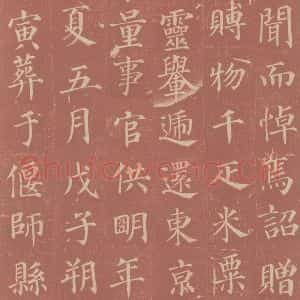 聞而悼焉詔贈
賻物千疋米粟
靈轝遞還東京
量事官供明年
夏五月戊子朔
寅葬于偃師縣